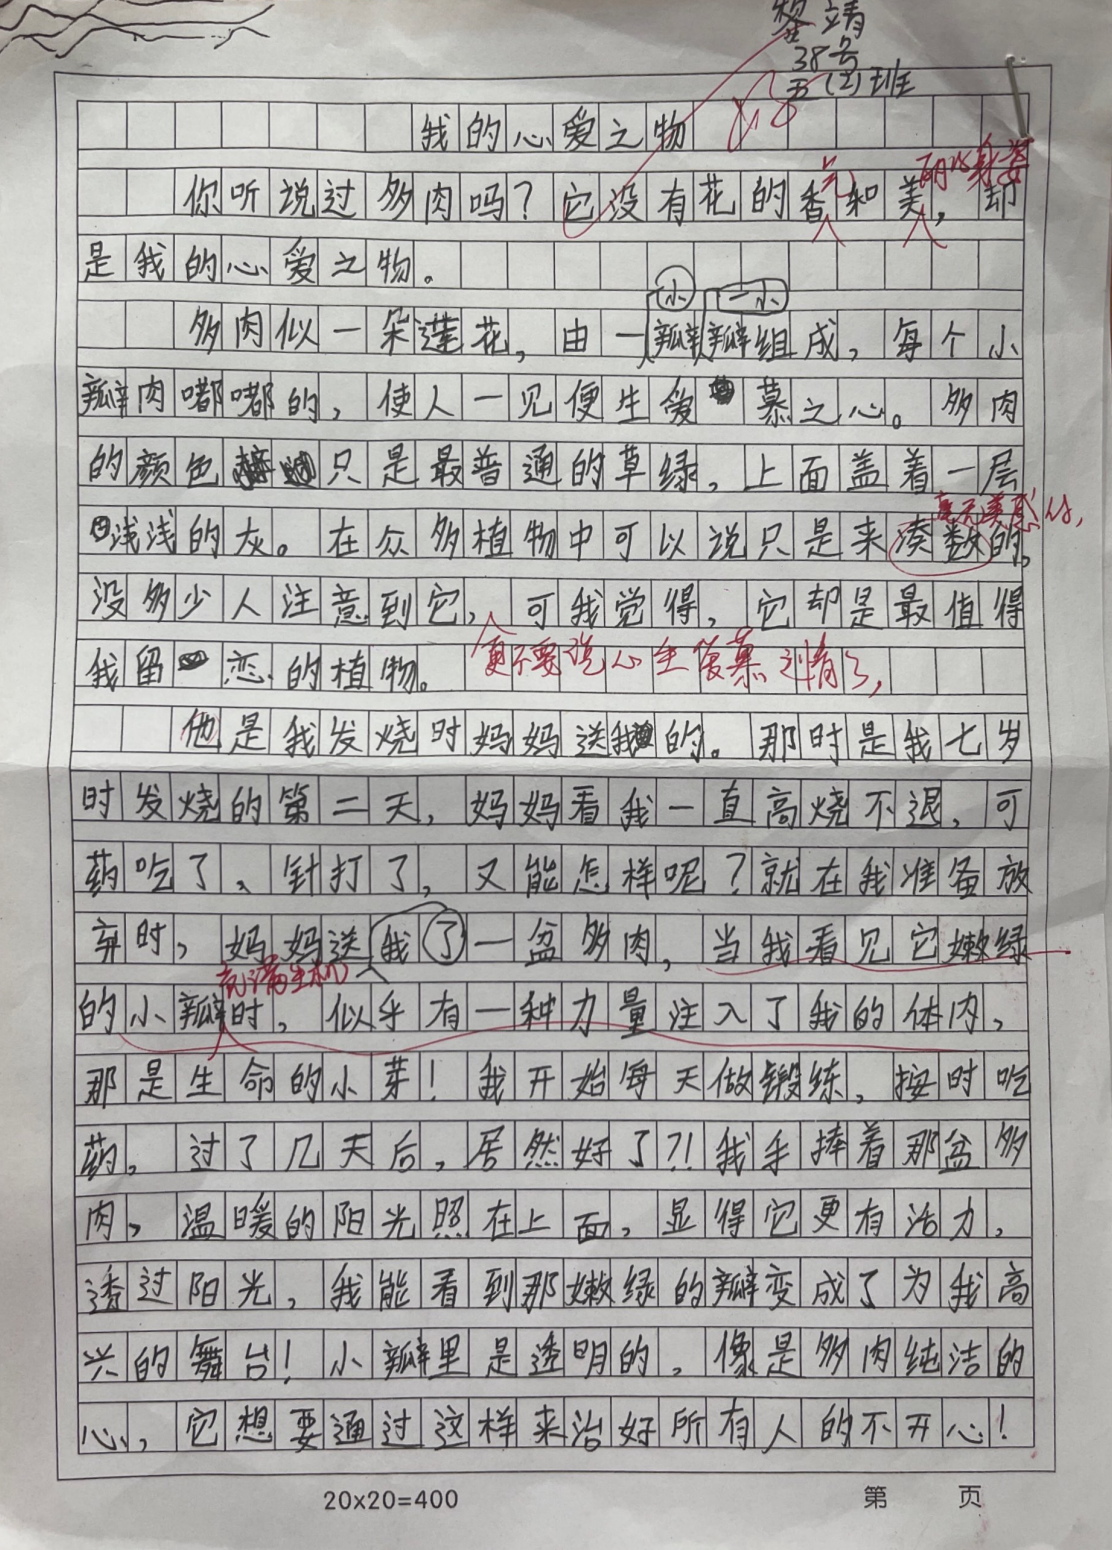 黎靖
38号
五(2)班
我的心爱之物
你听说过多肉吗？它没有花的香和美，却
是我的心爱之物。
小 一小
多肉似一朵莲花，由一瓣瓣组成，每个小
瓣肉嘟嘟的，使人一见便生爱慕之心。多肉
的颜色只是最普通的草绿，上面盖着一层
浅浅的灰。在众多植物中可以说只是来凑数的，
没多少人注意到它，可我觉得，它却是最值得
更不要说心生爱慕之情了，
我留恋的植物。
他是我发烧时妈妈送我的。那时是我七岁
时发烧的第二天，妈妈看我一直高烧不退，可
药吃了、针打了，又能怎样呢？就在我准备放
弃时，妈妈送我了一盆多肉，当我看见它嫩绿
充满生机
的小瓣时，似乎有一种力量注入了我的体内，
那是生命的小芽！我开始每天做锻练，按时吃
药，过了几天后，居然好了?!我手捧着那盆多
肉，温暖的阳光照在上面，显得它更有活力，
透过阳光，我能看到那嫩绿的瓣变成了为我高
兴的舞台！小瓣里是透明的，像是多肉纯洁的
心，它想要通过这样来治好所有人的不开心！
20×20=400
第 页